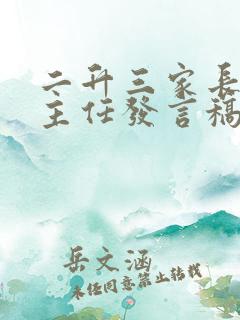 二升三家長
主任發言稿
岳文涵
未经同意禁止转载